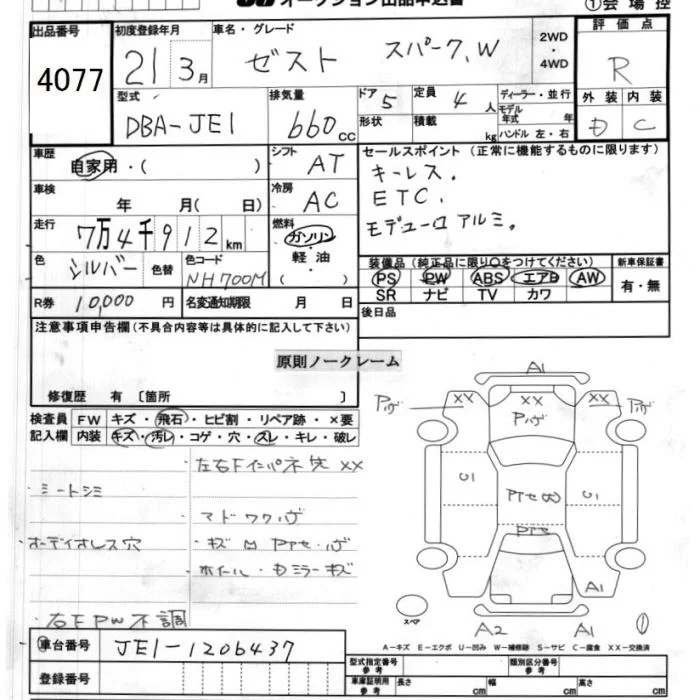 オークション出品申込書
①会場控
出品番号 4077
初度登録年月 21 3月
車名・グレード ゼスト スパーク,W
2WD・4WD
評価点 R
外装 D 内装 C
型式 DBA-JE1
排気量 660cc
ドア 5 定員 4人
形状 積載 kg
ディーラー・並行
モデル年式 年
ハンドル 左・右
車歴 自家用・( )
シフト AT
セールスポイント (正常に機能するものに限ります)
キーレス.
ETC.
モデューロ アルミ.
車検 年 月( 日)
冷房 AC
走行 7万4千912km
燃料 ガソリン・軽油・( )
色 シルバー 色替 色コード NH700M
装備品 (純正品に限り○をつけてください)
PS PW ABS エアB AW
SR ナビ TV カワ
新車保証書 有・無
R券 10,000円 名変通知期限 月 日
後日品
注意事項申告欄(不具合内容等は具体的に記入して下さい)
原則ノークレーム
修復歴 有 〔箇所 〕
検査員記入欄 FW キズ・飛石・ヒビ割・リペア跡・×要
内装 キズ・汚レ・コゲ・穴・スレ・キレ・破レ
左右Fインパネ欠 XX
・ミートシミ
・マドワクハゲ
・オーディオレス穴
・キズ凹 Pアセ・ハゲ
・ホイール・Dミラーキズ
・右F PW 不調
A1
XX XX XX
Pハゲ Pハゲ Pハゲ
U1 U1
Pアセ凹
Pアセ
A1
スペア
A2 A1
①
A-キズ E-エクボ U-凹み W-補修跡 S-サビ C-腐食 XX-交換済
車台番号 JE1-1206437
登録番号
型式指定番号 参考 類別区分番号 参考
車庫証明用 参考 長さ cm 幅 cm 高さ cm